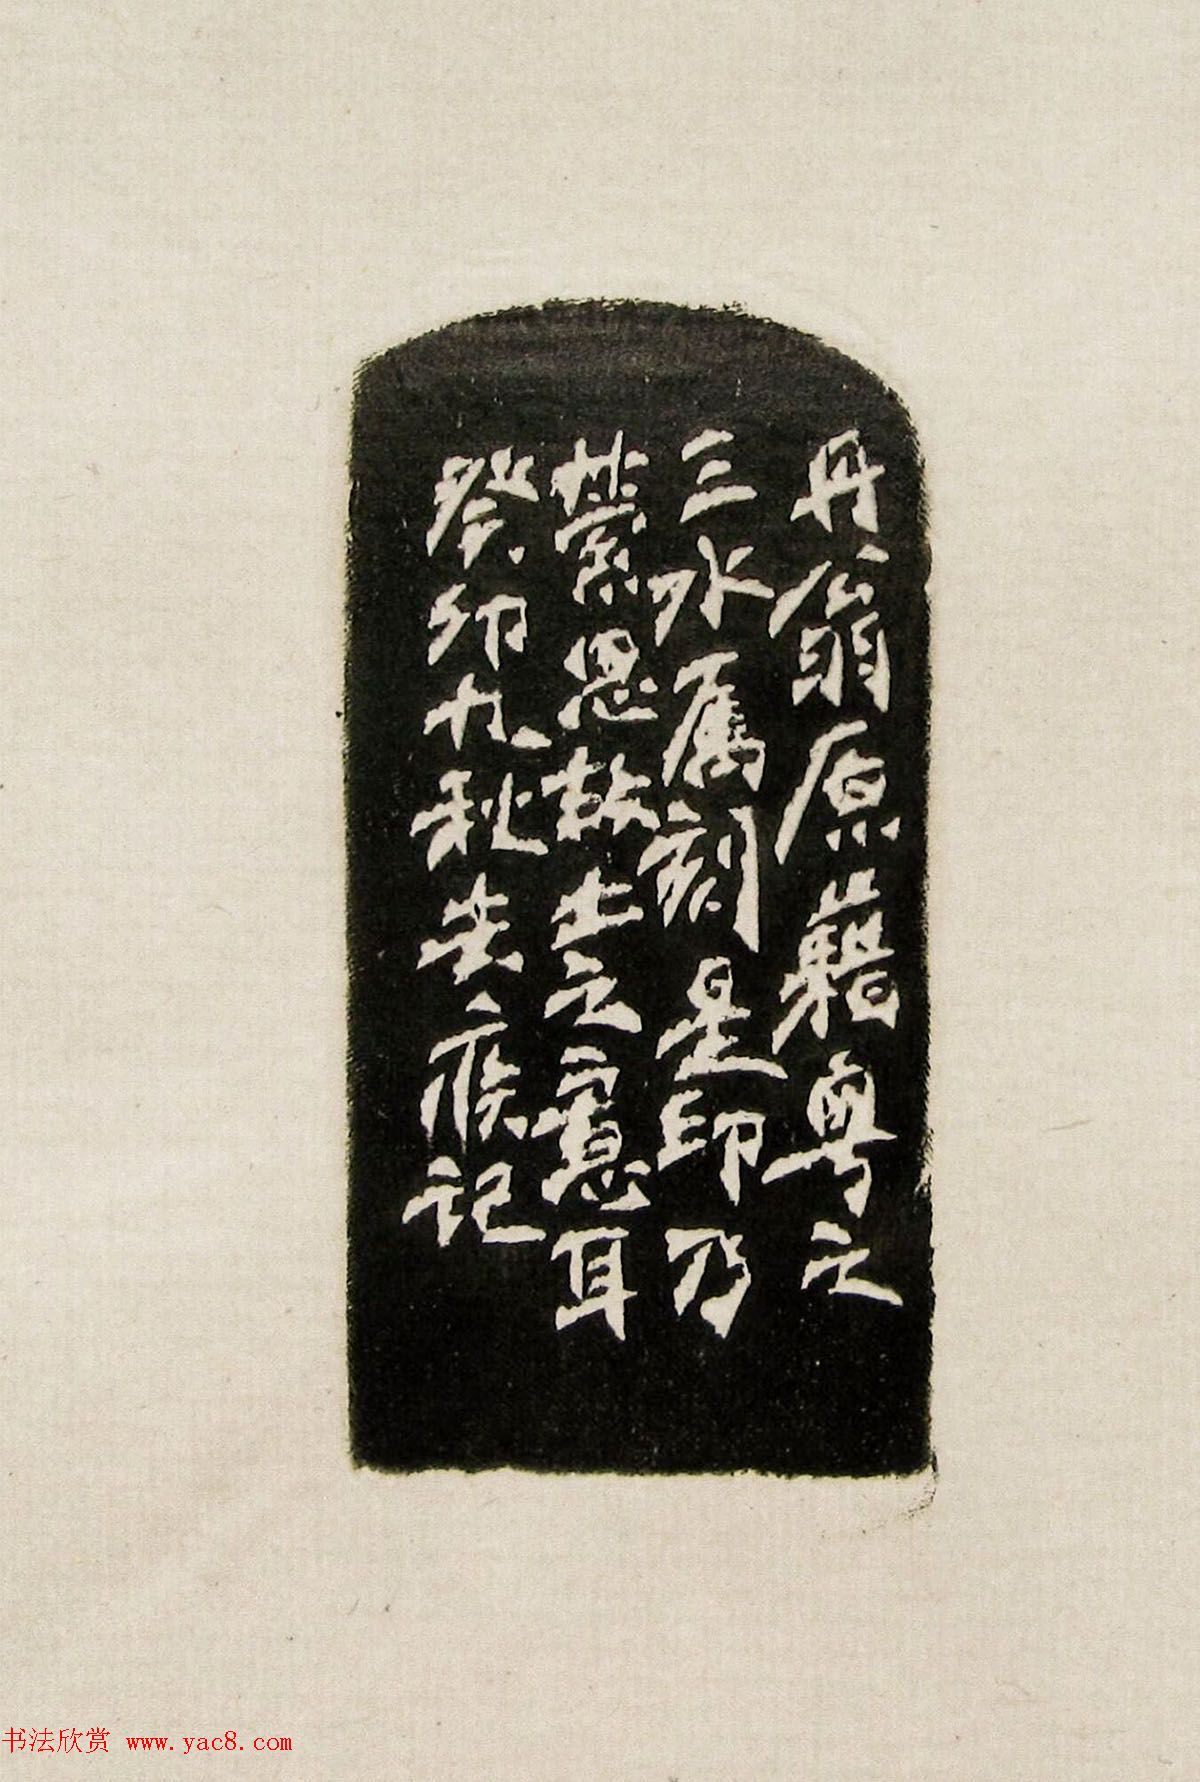 丹翁原藉粤之
三水属刻是印乃
萦思故土之意耳
癸卯九秋去疾记
书法欣赏 www.yac8.com